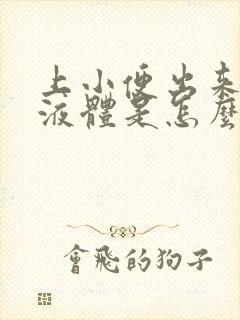 上小便出来
液體是怎麼
會飛的狗子